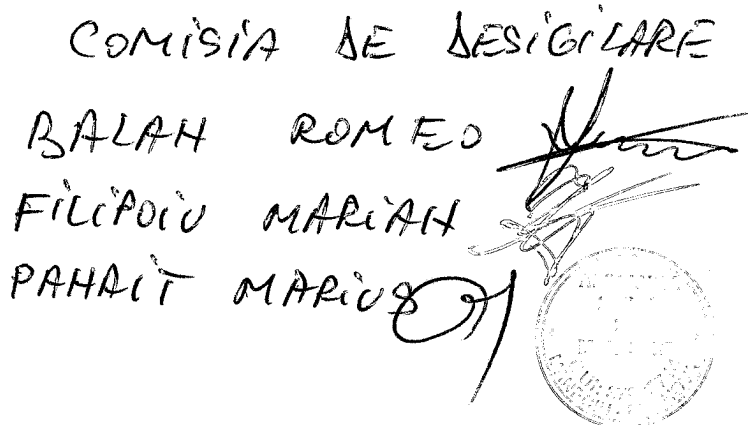 COMISIA DE DESIGILARE
BALAN ROMEO
FILIPOIU MARIAN
PANAIT MARIUS